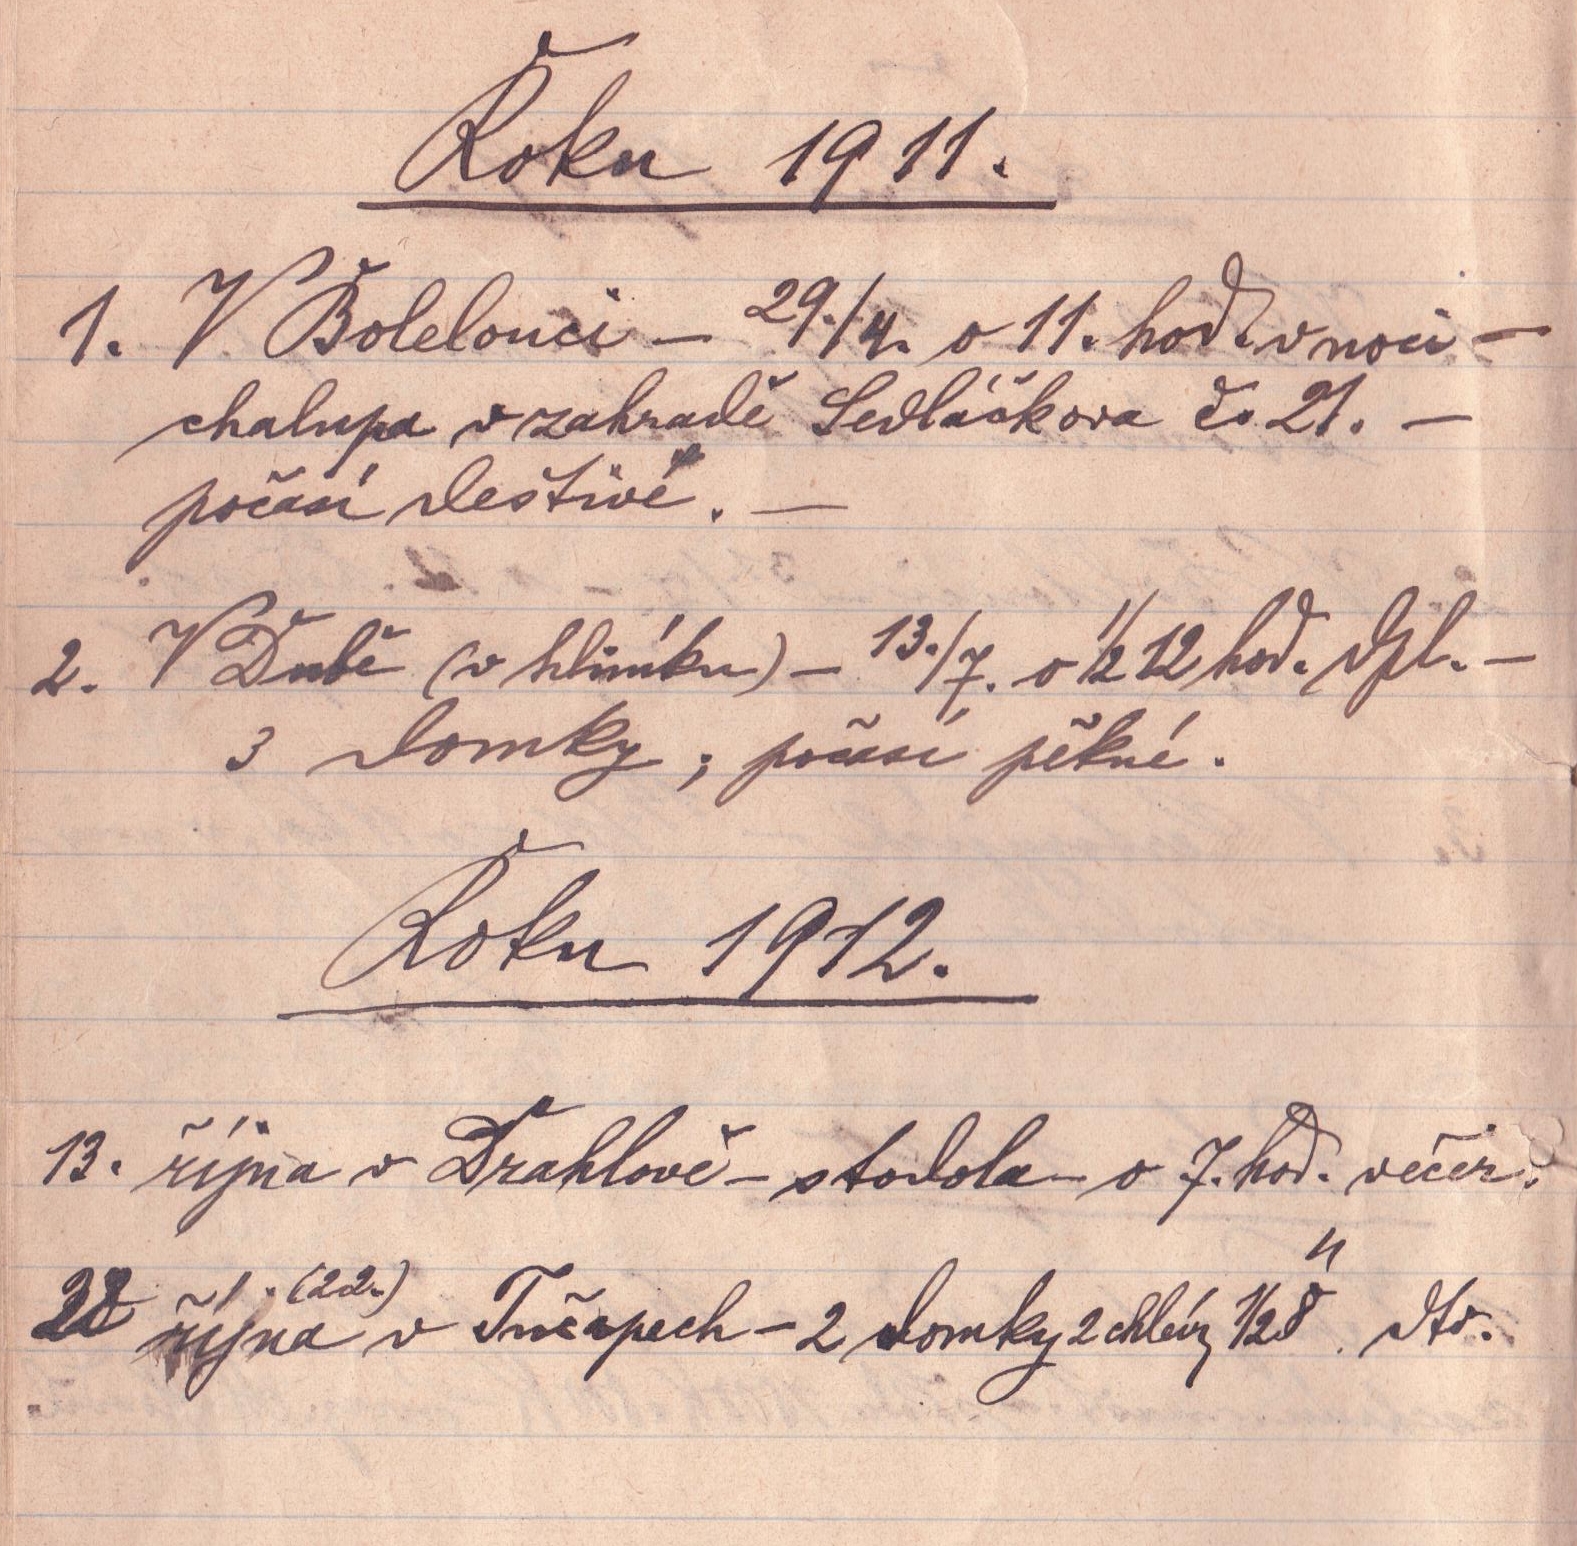 Roku 1911.
1. V Bolelouci – 29./4. o 11. hod. v noci –
chalupa v zahradě Sedláčkova č. 21. –
počasí deštivé. –
2. V Dubě (v hliníku) – 13./7. o 1/2 12 hod. dpl. –
3 domky; počasí pěkné.
Roku 1912.
13. října v Drahlově – stodola – o 7. hod. večer.
října (22.) v Tučapech – 2 domky 2 chlévy 1/2 8 dto.